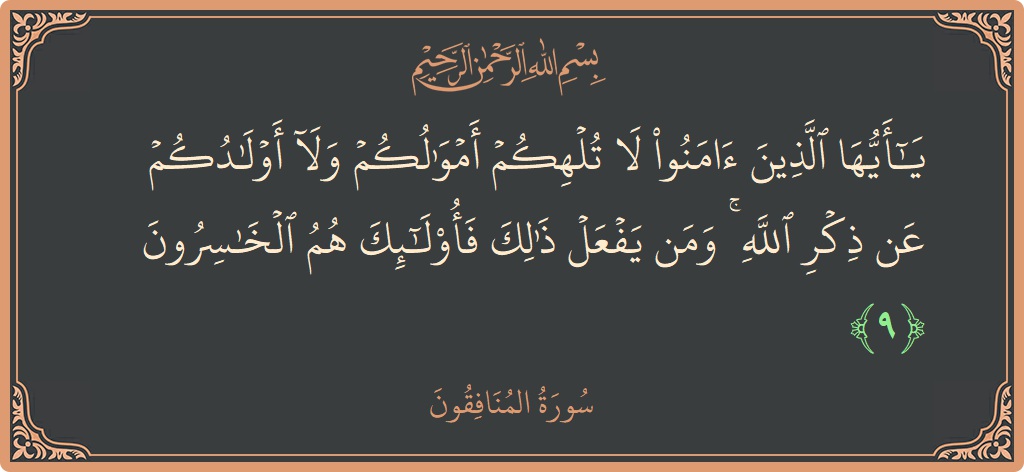 بِسْمِ اللَّهِ الرَّحْمَٰنِ الرَّحِيمِ
يَٰٓأَيُّهَا ٱلَّذِينَ ءَامَنُوا۟ لَا تُلْهِكُمْ أَمْوَٰلُكُمْ وَلَآ أَوْلَٰدُكُمْ
عَن ذِكْرِ ٱللَّهِ ۚ وَمَن يَفْعَلْ ذَٰلِكَ فَأُو۟لَٰٓئِكَ هُمُ ٱلْخَٰسِرُونَ
﴿٩﴾
سُورَةُ المُنَافِقُونَ